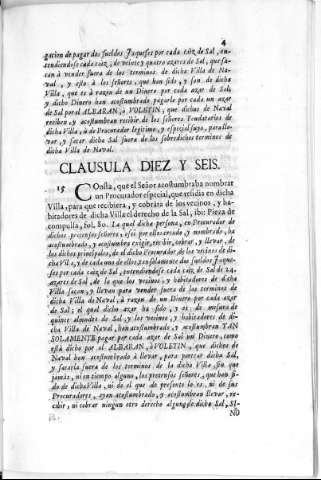 4
gacion de pagar dos sueldos Jaqueses por cada caiz de Sal, en-
tendiendose cada caiz, de veinte y quatro azares de Sal, que sa-
can à vender fuera de los terminos de dicha Villa de Na-
val, y esto à los señores, que han sido, y son de dicha
Villa, que es à razon de un Dinero por cada azar de Sal,
y dicho Dinero han acostumbrado pagarle por cada un azar
de Sal por el ALBARAN, ò VOLETIN, que dichos de Naval
reciben y acostumbran recibir de los señores Tenedores de
dicha Villa, ù de Procurador legitimo, y especial suyo, para lle-
var, y sacar dicha Sal fuera de los sobredichos terminos de
dicha Villa de Naval.
CLAUSULA DIEZ Y SEIS.
15 COnsta, que el Señor acostumbraba nombrar
un Procurador especial, que residia en dicha
Villa, para que recibiera, y cobràra de los vecinos, y ha-
bitadores de dicha Villa el derecho de la Sal, ibi: Pieza de
compulsa, fol. 80. La qual dicha persona, en Procurador de
dichos pretensos señores, esta por observado, y nombrado, ha
acostumbrado, y acostumbra exigir, recibir, cobrar, y llevar, de
los dichos principales, de el dicho Procurador de los vecinos de di-
cha Villa, y de cada uno de ellos, tan solamente dos sueldos Jaque-
ses por cada caiz de Sal, entendiendose cada caiz de Sal de 24.
azares de Sal, de la que los vecinos, y habitadores de dicha
Villa sacan, y llevan para vender fuera de los terminos de
dicha Villa de Naval, à razon de un Dinero por cada azar
de Sal; el qual dicho azar ha sido, y es de mesura de
quince almudes de Sal, y los vecinos, y habitadores de di-
cha Villa de Naval, han acostumbrado, y acostumbran TAN
SOLAMENTE pagar por cada azar de Sal un Dinero, como
està dicho por el ALBARAN, ò VOLETIN, que dichos de
Naval han acostumbrado à llevar, para portear dicha Sal,
y sacarla fuera de los terminos de la dicha Villa, sin que
jamàs, ni en tiempo alguno, los pretensos señores, que han si-
do de dicha Villa, ni de el que de presente lo es, ni de sus
Procuradores, ayan acostumbrado, y acostumbran llevar, re-
cibir, ni cobrar ningun otro derecho alguno de dicha Sal, SI-
NO